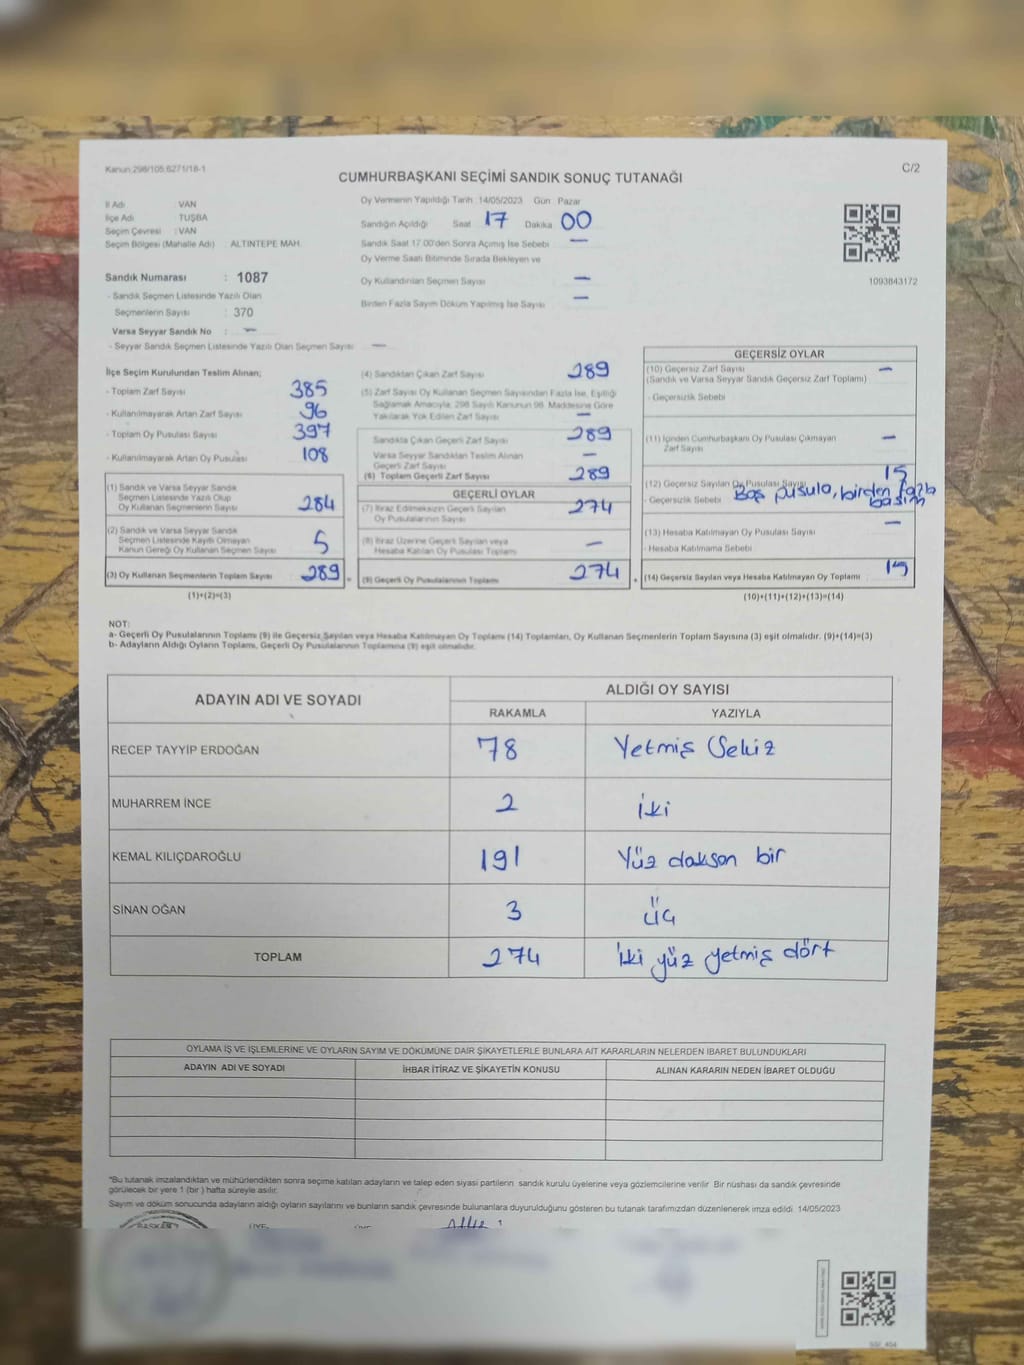 Kanun:298/105,6271/18-1
C/2
CUMHURBAŞKANI SEÇİMİ SANDIK SONUÇ TUTANAĞI
İl Adı : VAN
İlçe Adı : TUŞBA
Seçim Çevresi : VAN
Seçim Bölgesi (Mahalle Adı) : ALTINTEPE MAH.
Sandık Numarası : 1087
- Sandık Seçmen Listesinde Yazılı Olan
Seçmenlerin Sayısı : 370
Varsa Seyyar Sandık No : —
- Seyyar Sandık Seçmen Listesinde Yazılı Olan Seçmen Sayısı —
Oy Vermenin Yapıldığı Tarih :14/05/2023 Gün Pazar
Sandığın Açıldığı Saat 17 Dakika 00
Sandık Saat 17.00'den Sonra Açımış İse Sebebi —
Oy Verme Saati Bitiminde Sırada Bekleyen ve
Oy Kullandırılan Seçmen Sayısı —
Birden Fazla Sayım Döküm Yapılmış İse Sayısı —
1093843172
İlçe Seçim Kurulundan Teslim Alınan;
- Toplam Zarf Sayısı 385
- Kullanılmayarak Artan Zarf Sayısı 96
- Toplam Oy Pusulası Sayısı 397
- Kullanılmayarak Artan Oy Pusulası 108
(1) Sandık ve Varsa Seyyar Sandık
Seçmen Listesinde Yazılı Olup
Oy Kullanan Seçmenlerin Sayısı 284
(2) Sandık ve Varsa Seyyar Sandık
Seçmen Listesinde Kayıtlı Olmayan
Kanun Gereği Oy Kullanan Seçmen Sayısı 5
(3) Oy Kullanan Seçmenlerin Toplam Sayısı 289 =
(1)+(2)=(3)
(4) Sandıktan Çıkan Zarf Sayısı 289
(5) Zarf Sayısı Oy Kullanan Seçmen Sayısından Fazla İse, Eşitliği
Sağlamak Amacıyla; 298 Sayılı Kanunun 98. Maddesine Göre
Yakılarak Yok Edilen Zarf Sayısı —
Sandıkta Çıkan Geçerli Zarf Sayısı 289
Varsa Seyyar Sandıktan Teslim Alınan
Geçerli Zarf Sayısı —
(6) Toplam Geçerli Zarf Sayısı 289
GEÇERLİ OYLAR
(7) İtiraz Edilmeksizin Geçerli Sayılan
Oy Pusulalarının Sayısı 274
(8) İtiraz Üzerine Geçerli Sayılan veya
Hesaba Katılan Oy Pusulası Toplamı —
(9) Geçerli Oy Pusulalarının Toplamı 274 +
GEÇERSİZ OYLAR
(10) Geçersiz Zarf Sayısı —
(Sandık ve Varsa Seyyar Sandık Geçersiz Zarf Toplamı)
- Geçersizlik Sebebi
(11) İçinden Cumhurbaşkanı Oy Pusulası Çıkmayan
Zarf Sayısı —
(12) Geçersiz Sayılan Oy Pusulası Sayısı 15
- Geçersizlik Sebebi Boş pusula, birden fazla
basım
(13) Hesaba Katılmayan Oy Pusulası Sayısı —
- Hesaba Katılmama Sebebi
(14) Geçersiz Sayılan veya Hesaba Katılmayan Oy Toplamı 15
(10)+(11)+(12)+(13)=(14)
NOT:
a- Geçerli Oy Pusulalarının Toplamı (9) ile Geçersiz Sayılan veya Hesaba Katılmayan Oy Toplamı (14) Toplamları, Oy Kullanan Seçmenlerin Toplam Sayısına (3) eşit olmalıdır. (9)+(14)=(3)
b- Adayların Aldığı Oyların Toplamı, Geçerli Oy Pusulalarının Toplamına (9) eşit olmalıdır.
ADAYIN ADI VE SOYADI
ALDIĞI OY SAYISI
RAKAMLA YAZIYLA
RECEP TAYYİP ERDOĞAN 78 Yetmiş Sekiz
MUHARREM İNCE 2 iki
KEMAL KILIÇDAROĞLU 191 Yüz doksan bir
SİNAN OĞAN 3 üç
TOPLAM 274 iki yüz yetmiş dört
OYLAMA İŞ VE İŞLEMLERİNE VE OYLARIN SAYIM VE DÖKÜMÜNE DAİR ŞİKAYETLERLE BUNLARA AİT KARARLARIN NELERDEN İBARET BULUNDUKLARI
ADAYIN ADI VE SOYADI İHBAR İTİRAZ VE ŞİKAYETİN KONUSU ALINAN KARARIN NEDEN İBARET OLDUĞU
*Bu tutanak imzalandıktan ve mühürlendikten sonra seçime katılan adayların ve talep eden siyasi partilerin sandık kurulu üyelerine veya gözlemcilerine verilir. Bir nüshası da sandık çevresinde
görülecek bir yere 1 (bir ) hafta süreyle asılır.
Sayım ve döküm sonucunda adayların aldığı oyların sayılarını ve bunların sandık çevresinde bulunanlara duyurulduğunu gösteren bu tutanak tarafımızdan düzenlenerek imza edildi. 14/05/2023
BAŞKAN ÜYE ÜYE